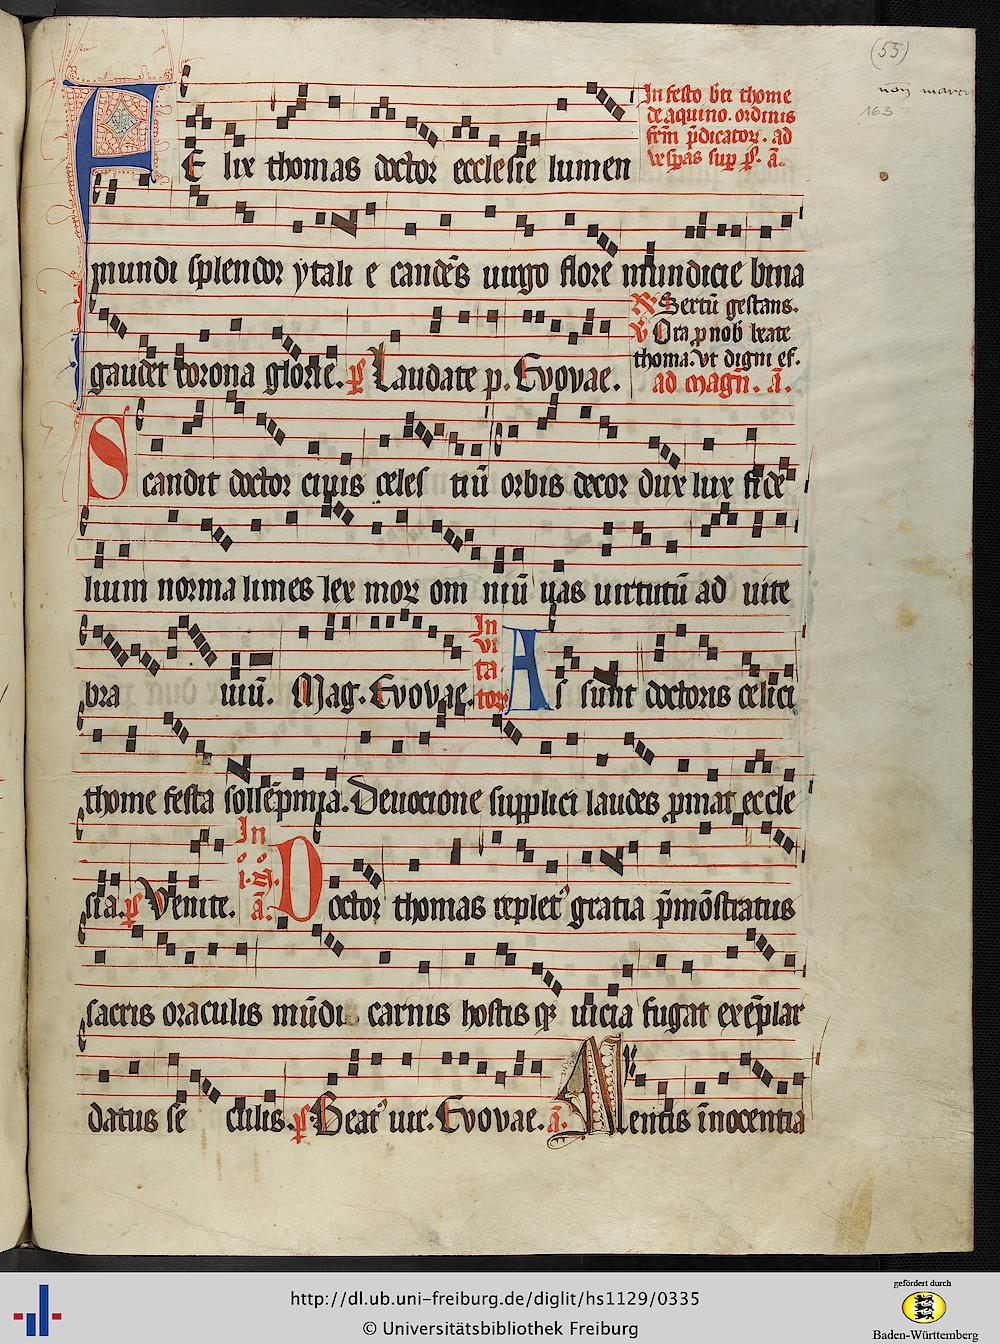 (55)
non marti
163
In festo bti thome
de aquino. ordinis
frm p̄dicatoꝝ. ad
vesp̄as sup ps. a̅.
FE lix thomas doctor ecclesie lumen
mundi splendor ytali e candēs uirgo flore mundicie bina
℟ Sertū gestans.
℣ Ora p nob beate
thoma. Vt digni ef.
ad magn̄. a̅.
gaudet corona glorie. ps Laudate p. Evovae.
Scandit doctor ciuis celes tiū orbis decor dux lux fide
lium norma limes lex moꝝ om niū uas uirtutū ad uite
In
vi
ta
toꝝ
bra uiū. Mag. Evovae. As sunt doctoris celici
thome festa sollēpnia. Deuocione supplici laudes p̱mat eccle
In
.i. n̄.
a̅.
sia. ps Venite. Doctor thomas replet᷒ gratia p̄mōstratus
sacris oraculis mūdi carnis hostis qꝫ uicia fugat exēplar
datus se culis. ps Beat᷒ uir. Evovae. a̅. Mentis īnocentia
http://dl.ub.uni-freiburg.de/diglit/hs1129/0335
© Universitätsbibliothek Freiburg
gefördert durch
Baden-Württemberg